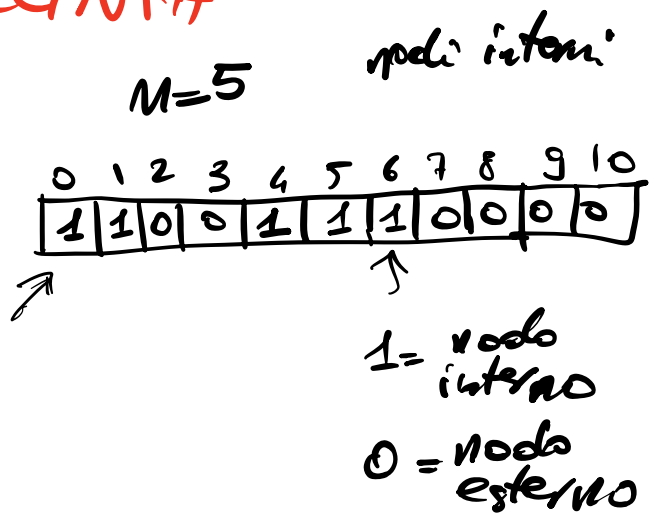 M=5 nodi interni
0 1 2 3 4 5 6 7 8 9 10
1 1 0 0 1 1 1 0 0 0 0
1= nodo
interno
0 = nodo
esterno